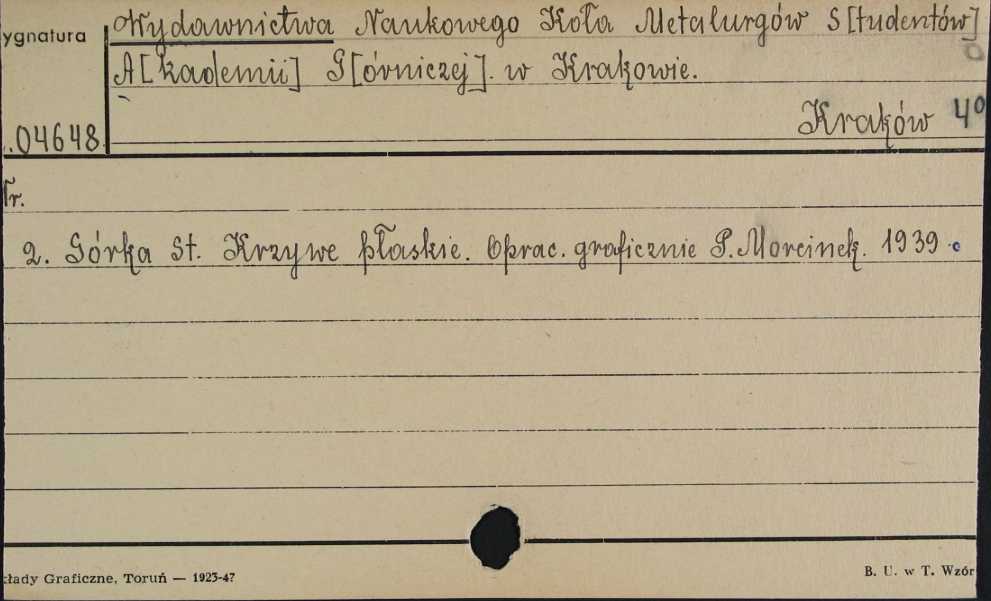 Wydawnictwa Naukowego Koła Metalurgów S[tudentów]
ygnatura
A[kademii] G[órniczej]. w Krakowie.
Kraków 4°
.04648
Nr.
2. Górka St. Krzywe płaskie. Oprac. graficznie P. Morcinek. 1939
kłady Graficzne, Toruń — 1923-47
B. U. w T. Wzór